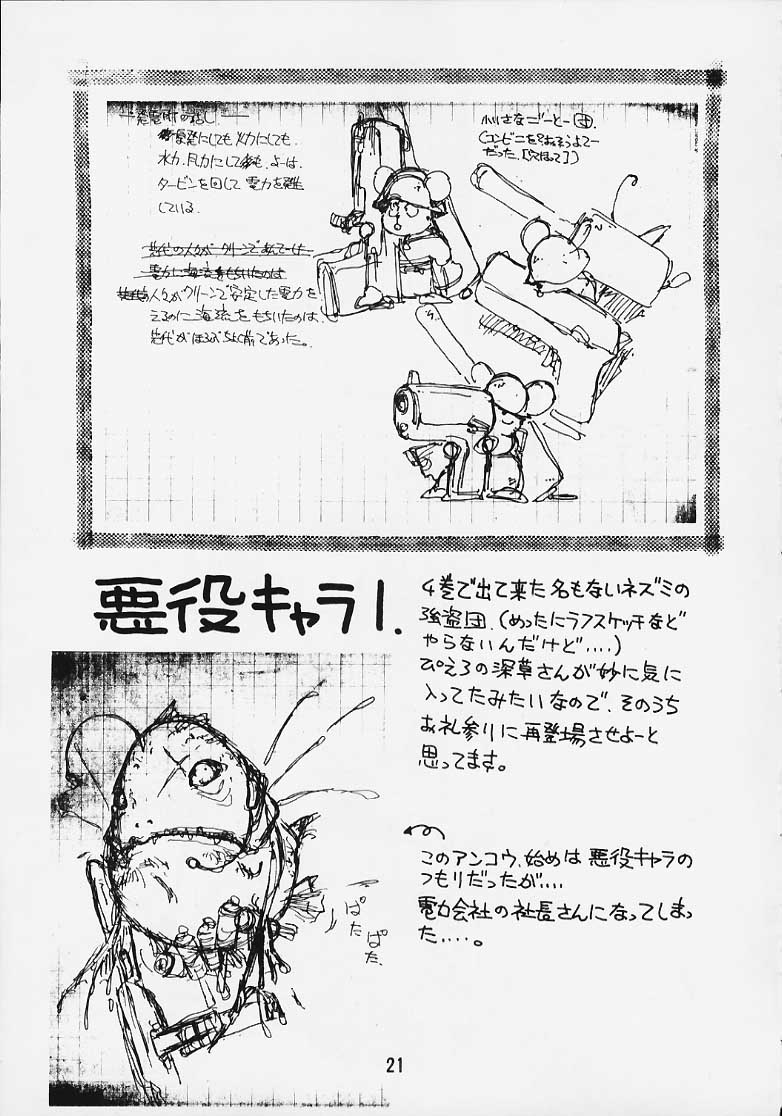 発電所の話し
原発にしても火力にしても、
水力、風力にしても、よーは、
タービンを回して電力を発
している。
人々がクリーンで安定した電力を
えるのに海流をもちいたのは、
先代がほろぶちょい前であった。
小さなごーとー団。
(コンビニをおそうよてー
だった。[穴ほって])
悪役キャラ1.
4巻で出て来た名もないネズミの
強盗団。(めったにラフスケッチなど
やらないんだけど....)
ぴえろの深草さんが妙に気に
入ってたみたいなので、そのうち
お礼参りに再登場させよーと
思ってます。
このアンコウ、始めは悪役キャラの
つもりだったが....
電力会社の社長さんになってしまっ
た....。
ぱた
ぱた
21